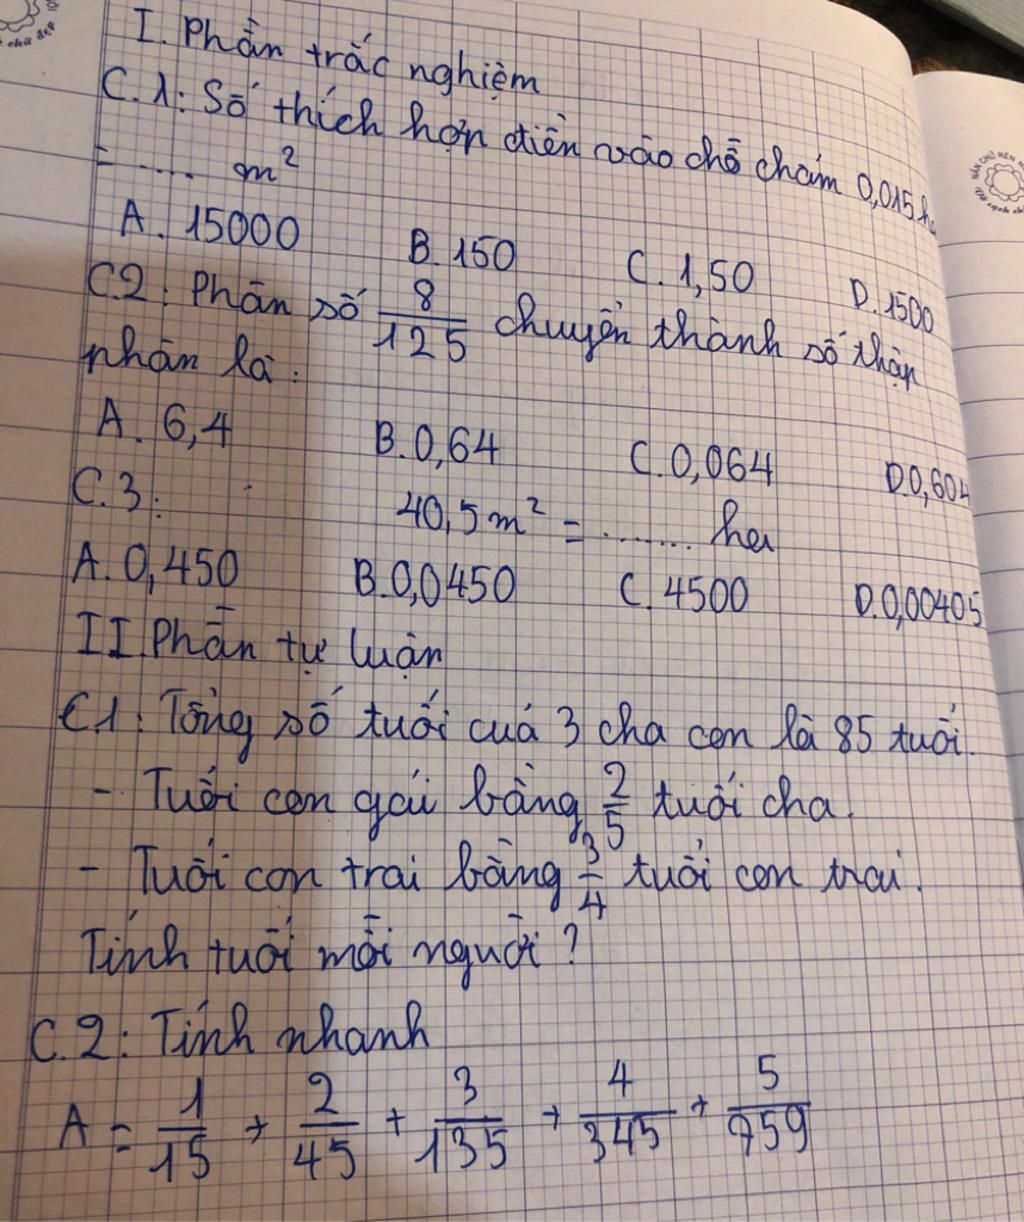 I. Phần trắc nghiệm
C.1: Số thích hợp điền vào chỗ chấm 0,015 ha
= ..... m²
A. 15000 B. 150 C. 1,50 D. 1500
C.2: Phân số 8/125 chuyển thành số thập
phân là:
A. 6,4 B. 0,64 C. 0,064 D. 0,604
C.3: 40,5 m² = ....... ha
A. 0,450 B. 0,0450 C. 4500 D. 0,00405
II. Phần tự luận
C1: Tổng số tuổi của 3 cha con là 85 tuổi.
- Tuổi con gái bằng 2/5 tuổi cha.
- Tuổi con trai bằng 3/4 tuổi con trai.
Tính tuổi mỗi người?
C.2: Tính nhanh
A = 1/15 + 2/45 + 3/135 + 4/345 + 5/759